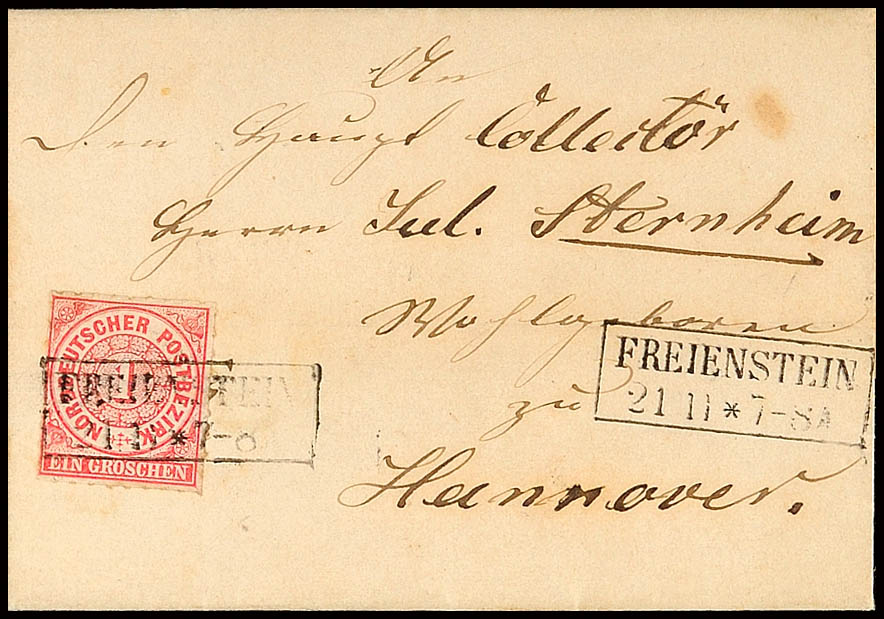 An
den Haupt Collectör
Herrn Jul. Sternheim
Wohlgeboren
zu
Hannover.
NORDDEUTSCHER POSTBEZIRK
1
EIN GROSCHEN
FREIENSTEIN
21 11 * 7-8
FREIENSTEIN
21 11 * 7-8A